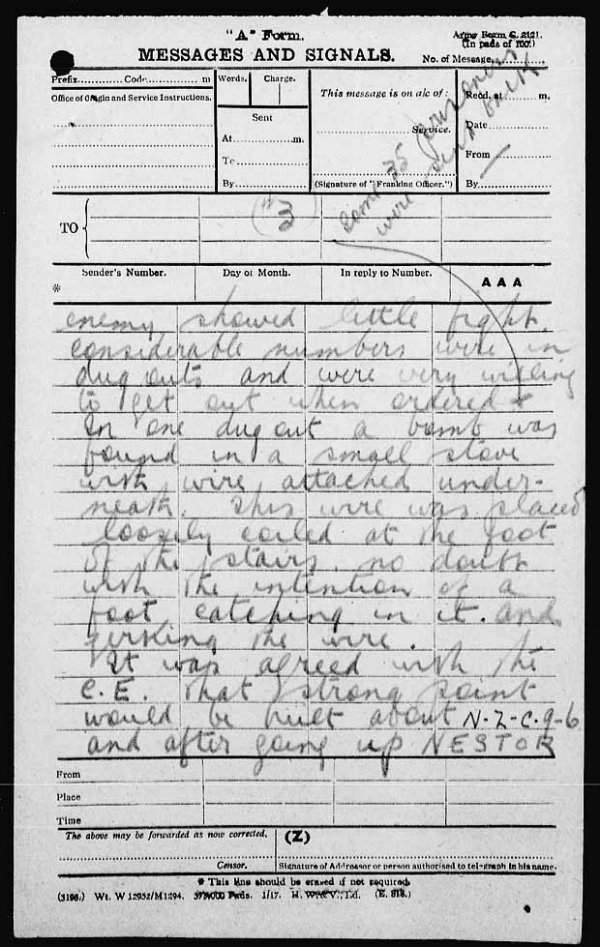 "A" Form.
Army Form C. 2121.
(In pads of 100.)
MESSAGES AND SIGNALS.
No. of Message
Prefix Code m
Words. Charge.
This message is on a/c of:
Recd. at m.
Office of Origin and Service Instructions.
Sent
Service.
Date
At m.
From
To
By
(Signature of "Franking Officer.")
By
Some 35 prisoners
were sent back
(3)
TO
Sender's Number. Day of Month. In reply to Number. AAA
*
enemy showed little fight.
considerable numbers were in
dug outs and were very willing
to get out when ordered
In one dug out a bomb was
found in a small stove
with wire attached under-
neath. This wire was placed
loosely coiled at the foot
of the stairs no doubt
with the intention of a
foot catching in it. and
jerking the wire.
It was agreed with the
C.E. that strong point
would be built about N-2-C.9-6
and after going up NESTOR
From
Place
Time
The above may be forwarded as now corrected. (Z)
Censor. Signature of Addressor or person authorised to telegraph in his name.
* This line should be erased if not required.
(3198.) Wt. W 12952/M1294. Pads. 1/17. (E. 818.)